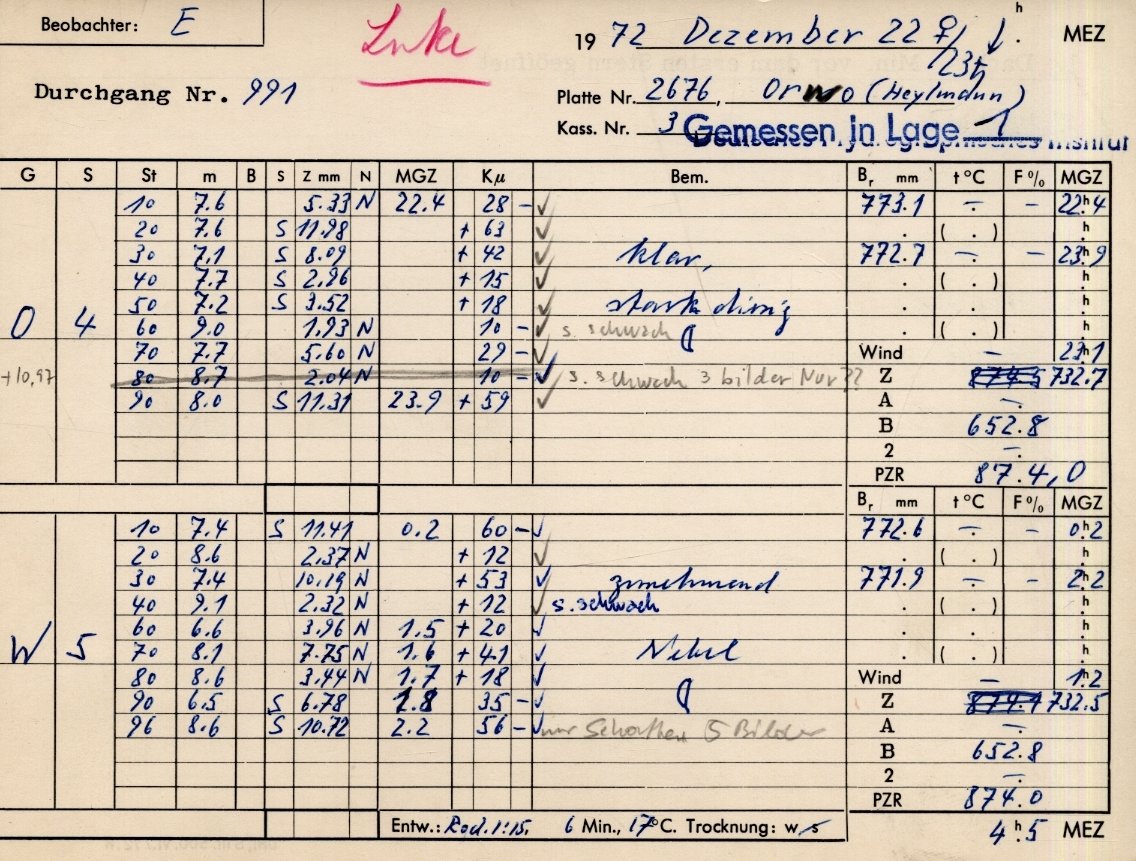 Beobachter: E
Luke
19 72 Dezember 22 ♀ h MEZ
23h
Durchgang Nr. 991
Platte Nr. 2676, Orwo (Heylmann)
Kass. Nr. 3 Gemessen in Lage 1
G S St m B S Z mm N MGZ Kμ Bem. Br mm t °C F % MGZ
10 7.6 5.33 N 22.4 28 – ✓ 773.1 – – 22h4
20 7.6 S 11.98 + 63 ✓ ( . ) h
30 7.1 S 8.09 + 42 ✓ klar, 772.7 – – 23h9
40 7.7 S 2.96 + 15 ✓ ( . ) h
50 7.2 S 3.52 + 18 ✓ stark diesig h
O 4 60 9.0 1.93 N 10 – ✓ s. schwach ( . ) h
70 7.7 5.60 N 29 – ✓ Wind – 23h1
+10,97 80 8.7 2.04 N 10 – ✓ s. schwach 3 bilder Nur?? Z 732.7
90 8.0 S 11.31 23.9 + 59 ✓ A –
B 652.8
2 –
PZR 87.4,0
Br mm t °C F % MGZ
10 7.4 S 11.41 0.2 60 – ✓ 772.6 – – 0h2
20 8.6 2.37 N + 12 ✓ ( . ) h
30 7.4 10.19 N + 53 ✓ zunehmend 771.9 – – 2h2
40 9.1 2.32 N + 12 ✓ s. schwach ( . ) h
60 6.6 3.96 N 1.5 + 20 ✓ h
W 5 70 8.1 7.75 N 1.6 + 41 ✓ Nebel ( . ) h
80 8.6 3.44 N 1.7 + 18 ✓ Wind – 1h2
90 6.5 S 6.78 1.8 35 – ✓ Z 732.5
96 8.6 S 10.72 2.2 56 – ✓ nur Schatten 5 Bilder A –
B 652.8
2 –
PZR 874.0
Entw.: Rod. 1:15, 6 Min., 17 °C. Trocknung: w/s 4h5 MEZ